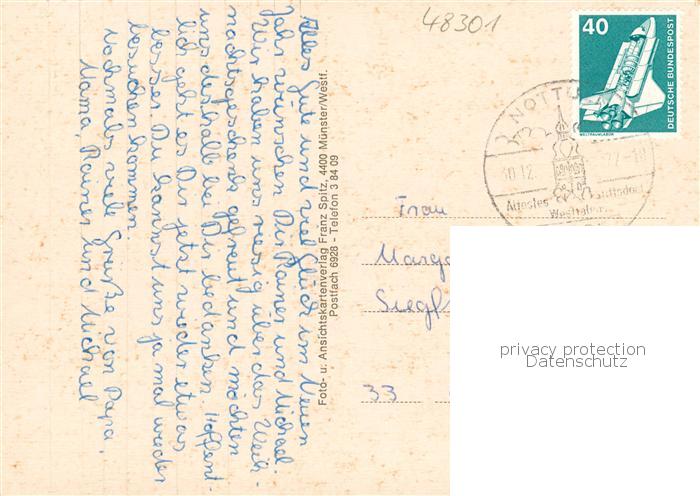 Alles Gute und viel Glück im Neuen
Jahr wünschen Dir Rainer und Michael.
Wir haben uns riesig über das Weih-
nachtsgeschenk gefreut und möchten
uns deshalb bei Dir bedanken. Hoffent-
lich geht es Dir jetzt wieder etwas
besser. Du kannst uns ja mal wieder
besuchen kommen.
Nochmals viele Grüße von Papa,
Mama, Rainer und Michael
Foto- u. Ansichtskartenverlag Franz Spitz, 4400 Münster/Westf.
Postfach 6928 - Telefon 3 84 09
48301
40
DEUTSCHE BUNDESPOST
WELTRAUMLABOR
NOTTU
30.12.
77-18
Ältestes Stiftsdorf
Westfalens
Frau
Marga
Siegf
33
privacy protection
Datenschutz